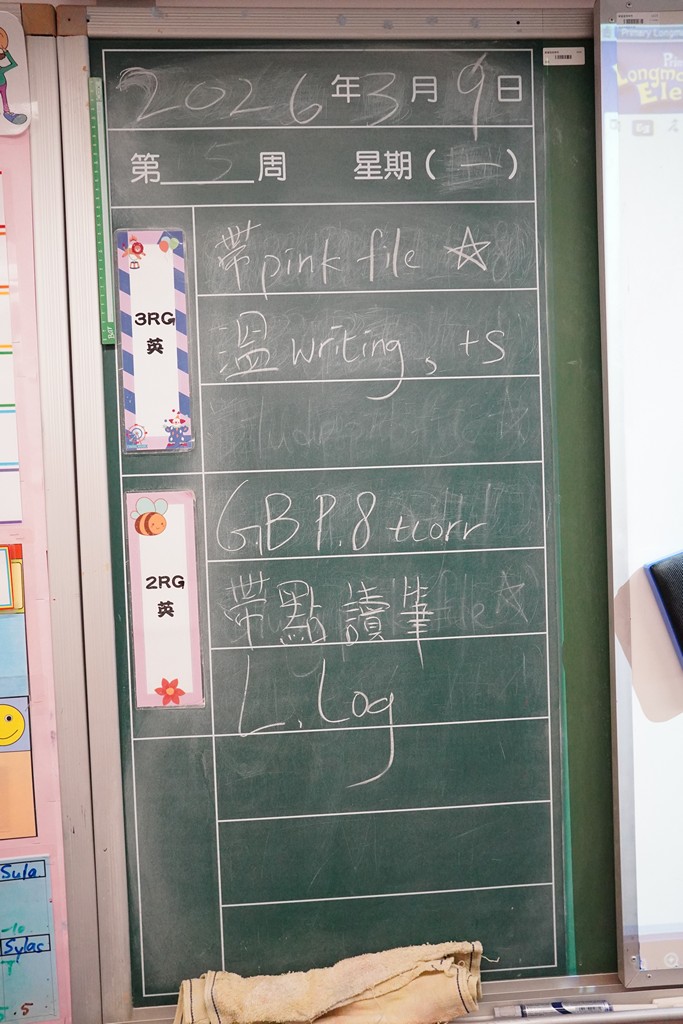 2026年3月9日
第 5 周 星期(一)
3RG
英
帶pink file ☆
溫writing, +s
2RG
英
G.B P.8 +corr
帶點讀筆
L.Log
Primary Longma
Longma
Ele
Sula
Sylas